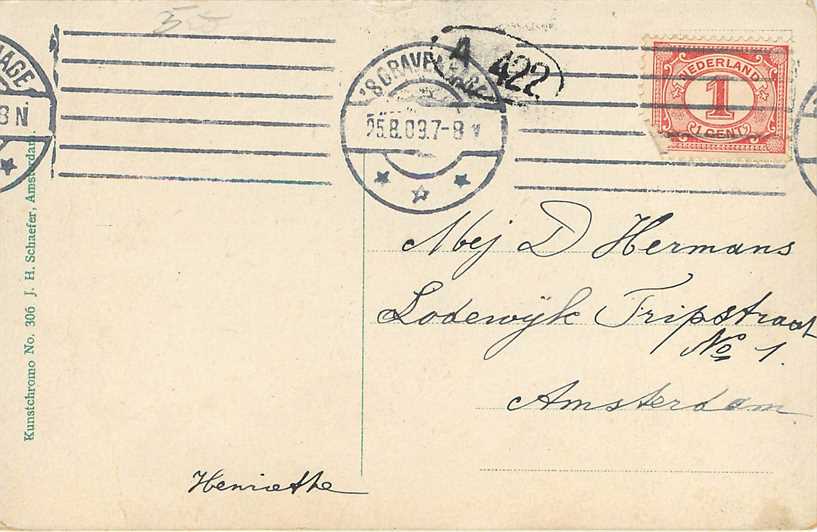 55
HAGE
8 N
'SGRAVENHAGE
25.8.09.7-8 V
A 422
NEDERLAND
1
1 CENT
Kunstchromo No. 306 J. H. Schaefer, Amsterdam.
Mej D Hermans
Lodewijk Tripstraat
No 1.
Amsterdam
Henriette